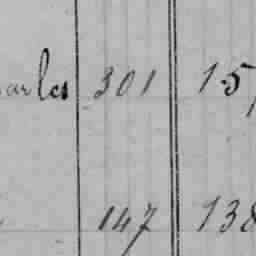 arles 301 1.5
147 138